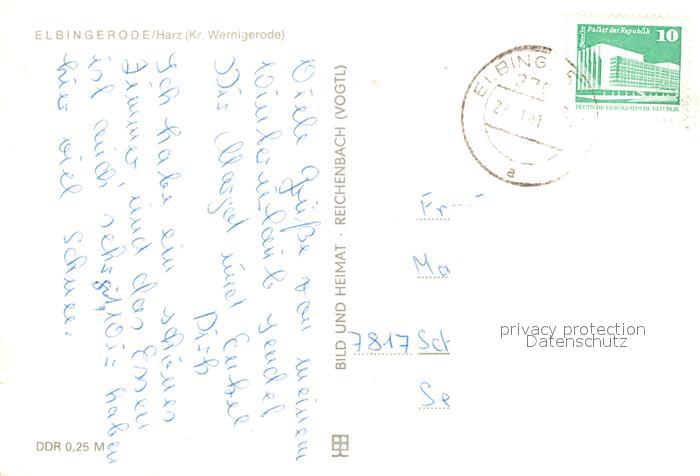 ELBINGERODE/Harz (Kr. Wernigerode)
Viele Grüße von meinem
Winterurlaub sendet
Dir Margot und Enkel
Dirk
Ich habe ein schönes
Zimmer und das Essen
ist auch sehr gut, Wir haben
hier viel Schnee.
DDR 0,25 M
BILD UND HEIMAT · REICHENBACH (VOGTL)
Berlin Palast der Republik 10
DEUTSCHE DEMOKRATISCHE REPUBLIK
ELBING
a
Fr
Ma
7817 Sch
Se
privacy protection
Datenschutz